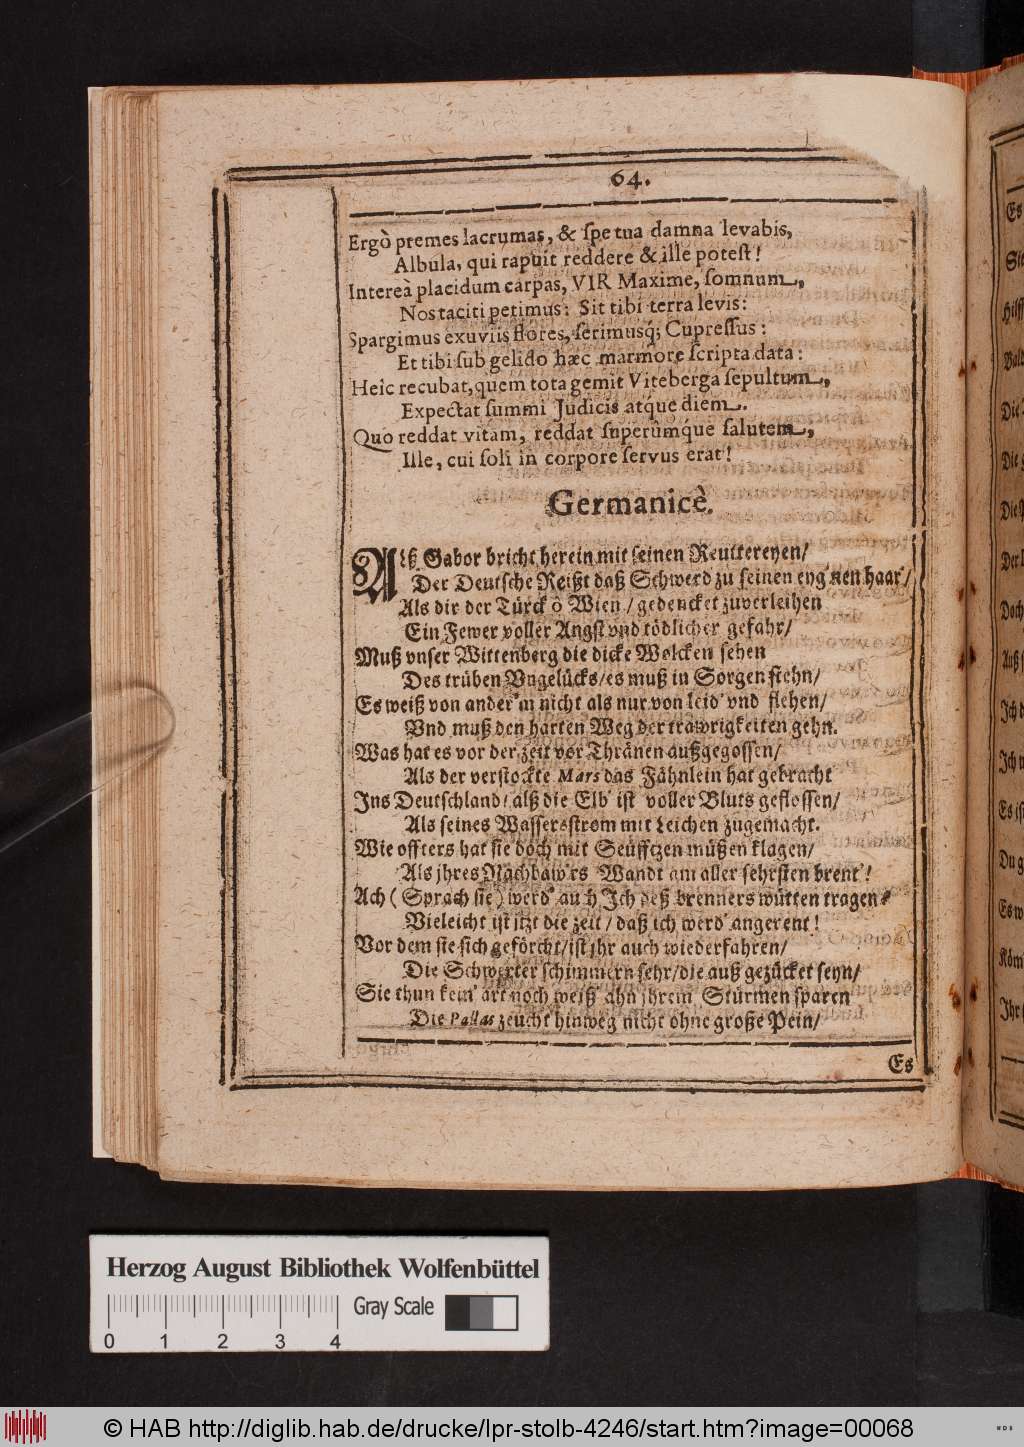 64.
Ergò premes lacrumas, & ſpe tua damna levabis,
Albula, qui rapuit reddere & ille poteſt!
Intereà placidum carpas, VIR Maxime, ſomnum,
Nos taciti petimus: Sit tibi terra levis:
Spargimus exuviis flores, ſerimusq́; Cupreſſus:
Et tibi ſub gelido hæc marmore ſcripta data:
Heic recubat, quem tota gemit Viteberga ſepultum,
Expectat ſummi Judicis atq́ue diem.
Quo reddat vitam, reddat ſuperûmq́ue ſalutem,
Ille, cui ſoli in corpore ſervus erat!
Germanicè.
Alß Gabor bricht herein mit ſeinen Reuttereyen/
Der Deutſche Reißt daß Schwerd zu ſeinen eyg'nen haar'/
Als dir der Türck ô Wien/ gedencket zuverleihen
Ein Fewer voller Angſt vnd tödlicher gefahr/
Muß vnſer Wittenberg die dicke Wolcken ſehen
Des trüben Vngelücks/ es muß in Sorgen ſtehn/
Es weiß von ander'm nicht als nur von leid' vnd flehen/
Vnd muß den harten Weg der trawrigkeiten gehn.
Was hat es vor der zeit vor Thränen außgegoſſen/
Als der verſtockte Mars das Fähnlein hat gebracht
Ins Deutſchland/ alß die Elb' iſt voller Bluts gefloſſen/
Als ſeines Waſſersſtrom mit Leichen zugemacht.
Wie offters hat ſie doch mit Seüfftzen müßen klagen/
Als jhres Nachbaw'rs Wandt am aller ſehrſten brent'!
Ach ( Sprach ſie ) werd' auch Ich deß brenners wütten tragen?
Vieleicht iſt jtzt die zeit/ daß ich werd' angerent!
Vor dem ſie ſich geförcht/ iſt jhr auch wiederfahren/
Die Schwerter ſchimmern ſehr/ die auß gezücket ſeyn/
Sie thun kein' art noch weiß' ahn jhrem Stürmen ſparen
Die Pallas zeucht hinweg nicht ohne große Pein/
Es
Herzog August Bibliothek Wolfenbüttel
Gray Scale
0 1 2 3 4
© HAB http://diglib.hab.de/drucke/lpr-stolb-4246/start.htm?image=00068